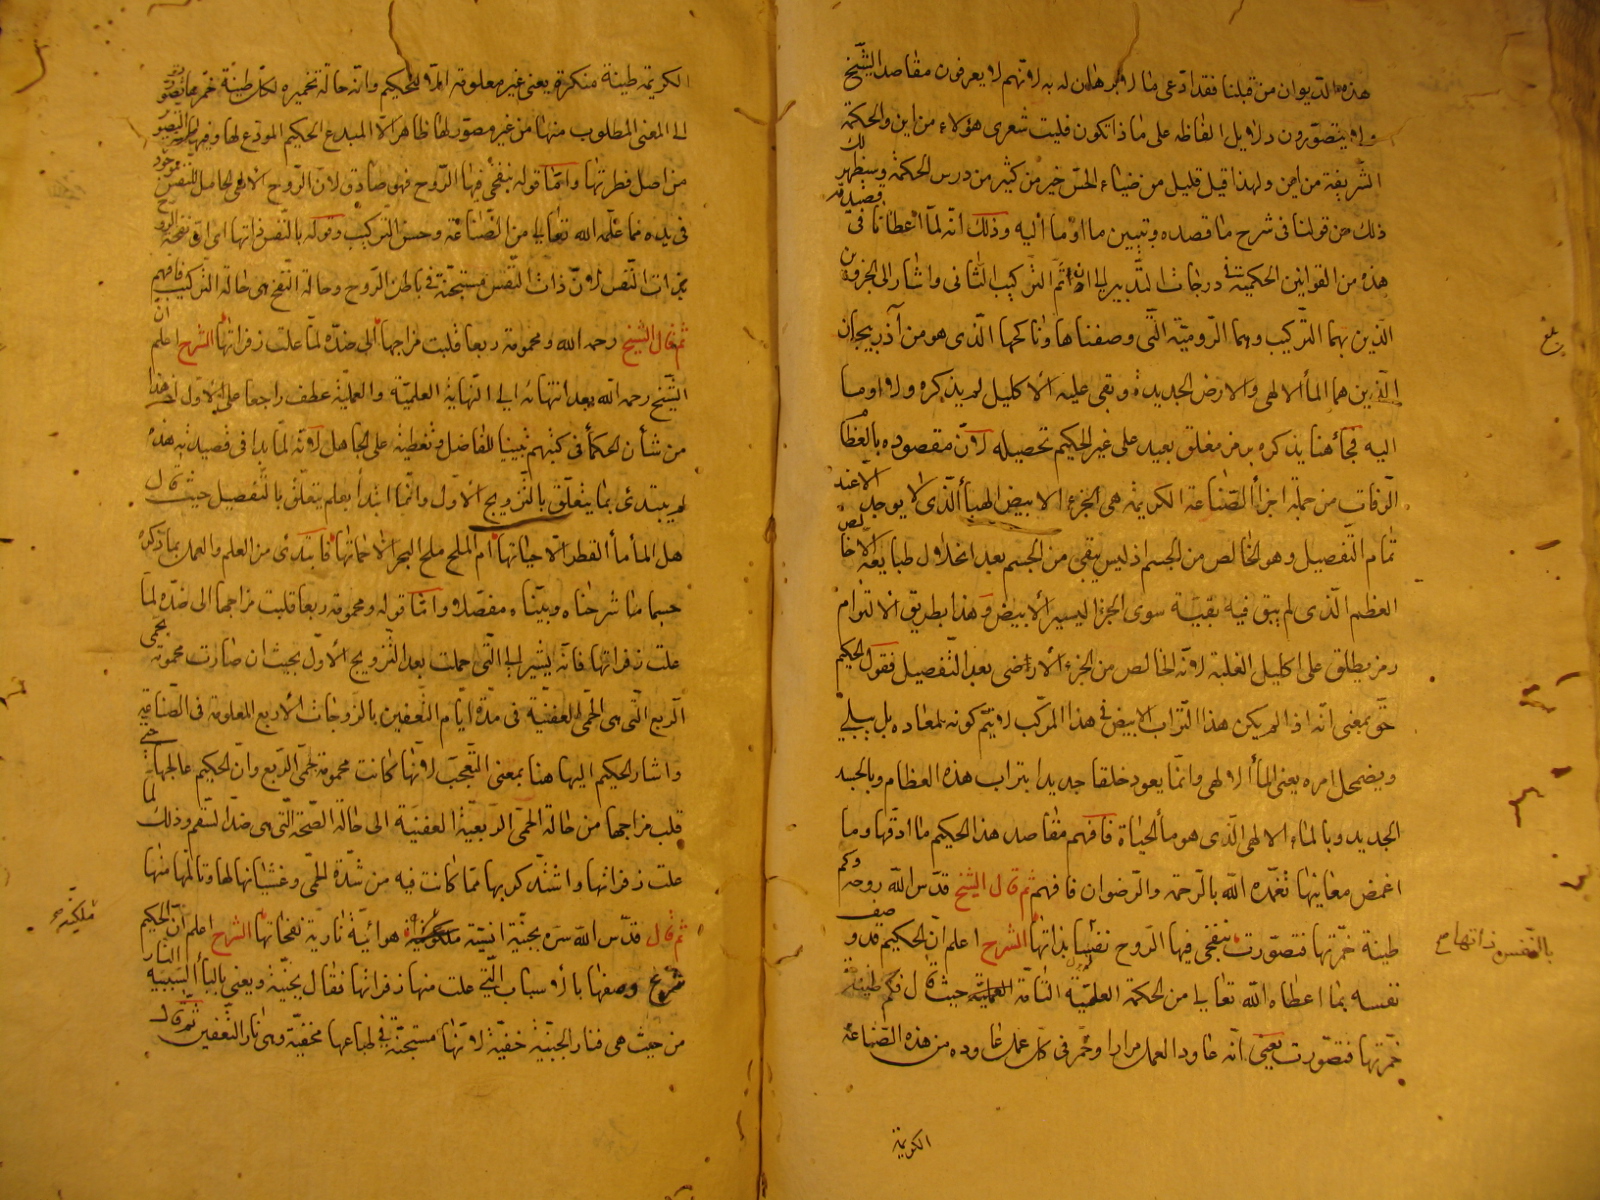 هذه الديوان من قبلنا فقد ادعى ما لا برهان له به لانهم لا يعرفون مقاصد الشيخ
ولا يتصورون دلايل الفاظه على ماذا تكون فليت شعرى هؤلاء من اين والحكمة
الشريفة من اين ولهذا قيل قليل من ضياء الحس خير من كثير من درس الحكمة وسيظهر لك
ذلك من قولنا فى شرح ما قصده وتبيين ما اومأ اليه وذلك انه لما اعطانا فى قصيدته
هذه من القوانين الحكمية فى درجات التدبير الى ان تم التركيب الثانى واشار الى الجزوين
الذين بهما التركيب وهما الروميّة التى وصفناها وناكحها الذى هو من آذربيجان
الذين هما الماء الالهى والارض الجديدة وبقى عليه الاكليل لم يذكره ولا اومأ
اليه فجاء هنا يذكره برمز مغلق بعيد على غير الحكيم تحصيله لان مقصوده بالعظام
الرفات من جملة اجزاء الصناعة الكريمة هى الجزء الابيض الهباء الذى لا يوجد الا عند
تمام التفصيل وهو الخالص من الجسم اذ ليس يبقى من الجسم بعد انحلال طبايعه الا خالص
العظم الذى لم يبق فيه بقية سوى الجزء اليسير الابيض وهذا بطريق الالتزام
رمز يطلق على اكليل الغلبة لانه الخالص من الجزء الارضى بعد التفصيل فقول الحكيم
حق بمعنى انه اذا لم يكن هذا التراب الابيض فى هذا المركب لا يتم كونه بمعاده بل يبلى
ويضمحل امره يعنى الماء الالهى وانما يعود خلقا جديدا بتراب هذه العظام وبالجسد
الجديد وبالماء الالهى الذى هو ماء الحياة فافهم مقاصد هذا الحكيم ما ادقها وما
اغمض معانيها تغمده الله بالرحمة والرضوان فافهم ثم قال الشيخ قدس الله روحه وكم
طينة خمرتها فتصورت بنفخى فيها الروح نفسا بذاتها الشرح اعلم ان الحكيم قد وصف
نفسه بما اعطاه الله تعالى من الحكمة العلمية التامة العملية حيث قال فكم طينة
خمرتها فتصورت يعنى انه عاود العمل مرارا وخمر فى كل عمل عاوده من هذه الصناعة
الكريمة
بلغ
بالنفس ذاتها
الكريمة طينة منكرة يعنى غير معلومة الا للحكيم وانه حالة تخميره لكل طينة خمرها
الى المعنى المطلوب منها من غير مصور لها ظاهر الا المبدع الحكيم المودع لها
من اصل فطرتها واما قوله بنفخى فيها الروح فهو صادق لان الروح الالهى الحامل للنفس موجود
فى يده مما علمه الله تعالى من الصناعة وحسن التركيب وقوله بالنفس ذاتها اى ان نفخة الروح
بذات النفس لان ذات النفس مستجنة فى باطن الروح وحالة النفخ هى حالة التركيب فافهم
ثم قال الشيخ رحمه الله ومحمومة ربعا قلبت مزاجها الى ضده لما علت زفراتها الشرح اعلم ان
الشيخ رحمه الله بعد انتهائه الى النهاية العلمية والعملية عطف راجعا على الاول
من شأن الحكماء فى كتبهم تبيينا للفاضل وتغطية على الجاهل لانه لما بدا فى قصيدته هذه
لم يبتدئ بما يتعلق بالتزويج الاول وانما ابتدأ بعلم يتعلق بالتفصيل حيث قال
هل الماء ماء القطر الا حياتها ام الملح ملح البحر الا مماتها فابتدئ من العلم والعمل بما ذكره
حسبما ما شرحناه وبيناه مفصلا واما قوله ومحمومة ربعا قلبت مزاجها الى ضده لما
علت زفراتها فانه يشير الى التى حملت بعد التزويج الاول بحيث ان صارت محمومة بحمى
الربع التى هى الحمى العفنية فى مدة ايام التعفين بالزوجات الاربع المعلومة فى الصناعة
واشار الحكيم اليها هنا بمعنى التعجب لانها كانت محمومة بحمى الربع وان الحكيم عالجها حتى
قلب مزاجها من حالة الحمى الربعية العفنية الى حالة الصحة التى هى ضد السقم وذلك لما
علت زفراتها واشتد كربها مما كانت فيه من شدة الحمى وغشيانها لها وتالمها منها
ثم قال قدس الله سره بجنية انسية هوائية نارية نفحاتها الشرح اعلم ان الحكيم
شرع وصفها بالاسباب التى علت منها زفراتها فقال بجنية ويعنى بالباء السببية النار
من حيث هى فنار الجنية خفية لانها مستجنة فى طباعها مخفية وهى نار التعفين ثم قال
ملكية